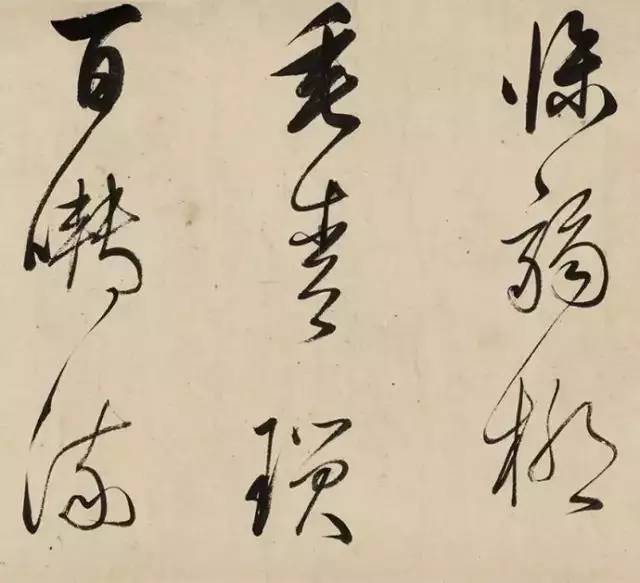 條弱柳
垂青瑣
百囀流